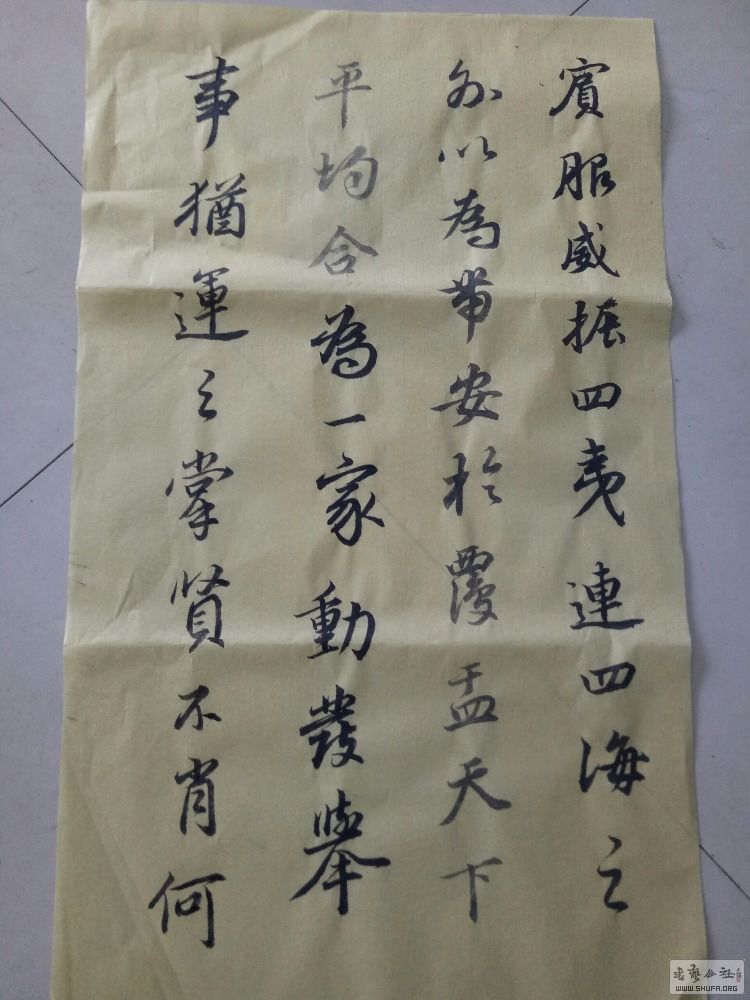 賓服威振四夷連四海之
外以為帶安於覆盂天下
平均合為一家動發舉
事猶運之掌賢不肖何
書藝公社
WWW.SHUFA.ORG